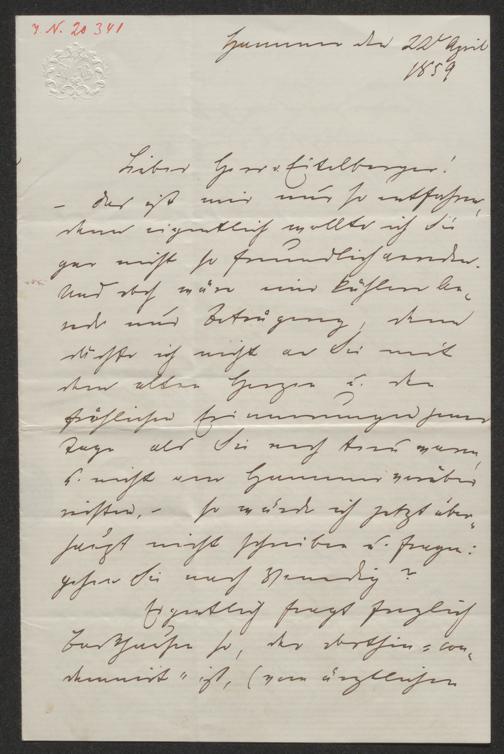 J. N. 20 341
Hannover den 22t April
1859
Lieber Herr v. Eitelberger!
– das ist mir nur so entfahren,
denn eigentlich wollte ich Sie
gar nicht so freundlich anreden.
Und doch wäre eine kühlere An,
rede nur Betrügerey, denn
dächte ich nicht an Sie mit
dem alten Herzen u. den
fröhlichen Erinnerungen jener
Tage als Sie noch treu waren
u. nicht an Hannover vorüber
reisten, – so würde ich jetzt über,
haupt nicht schreiben u. fragen:
gehen Sie nach Venedig?
Eigentlich fragt freylich
so, der dorthin „con,
demnirt" ist, (vom ärztlichen